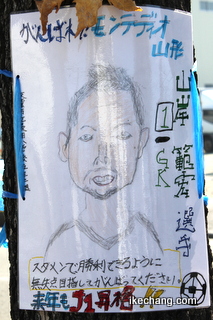 がんばれ!!モンテディオ
山形
山岸 範宏 選手
1 GK
スタメンで勝利できるように
無失点目指してがんばってください。
来年もJ1昇格
ikechang.com